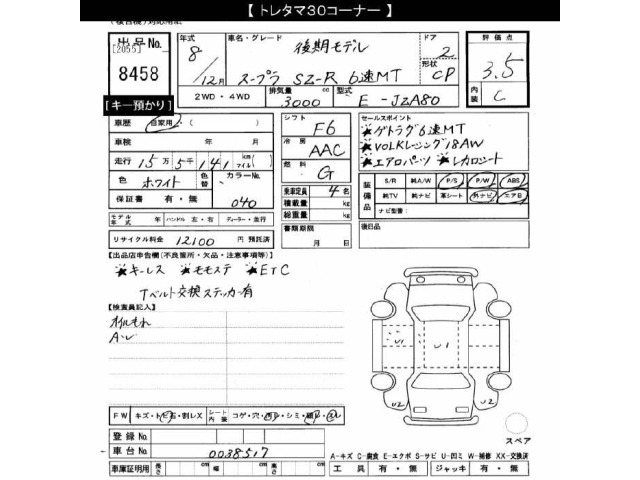 【トレタマ30コーナー】
出品No. 年式 車名・グレード 後期モデル ドア 評価点
[2055] 8 2 3.5
8458 12月 スープラ SZ-R 6速MT 形状 CP
[キー預かり] 2WD・4WD 排気量 3000 cc 型式 E-JZA80 内装 C
車歴 自家用・( ) シフト F6 セールスポイント
車検 年 月 冷房 AAC ★ゲトラグ6速MT
走行 15万5千141 km マイル 燃料 G ★VOLKレーシング18AW
色 ホワイト 色替 カラーNo. 040 乗車定員 4名 ★エアロパーツ ★レカロシート
保証書 有・無 積載量 kg 装備品 S/R 純A/W P/S P/W ABS
モデル年式 年 ハンドル 左・右 ディーラー・並行 総重量 kg 純TV 純ナビ 革シート 外ナビ エアB
ナビ型番:
リサイクル料金 12100 円 預託済 書類期限 月 日 後日品
【出品店申告欄(不良箇所・欠品・注意事項等)】
★キーレス ★モモステ ★ETC
Tベルト交換ステッカー有
【検査員記入】
オイルもれ
U1 U1
U2 U2
FW キズ・トビ石・割レX シート内装 コゲ・穴・シミ
登録No. スペア
車台No. 0038517 A-キズ C-腐食 E-エクボ S-サビ U-凹ミ W-補修 XX-交換済
車庫証明用 長さ cm 幅 cm 高さ cm 工具 有・無 ジャッキ 有・無